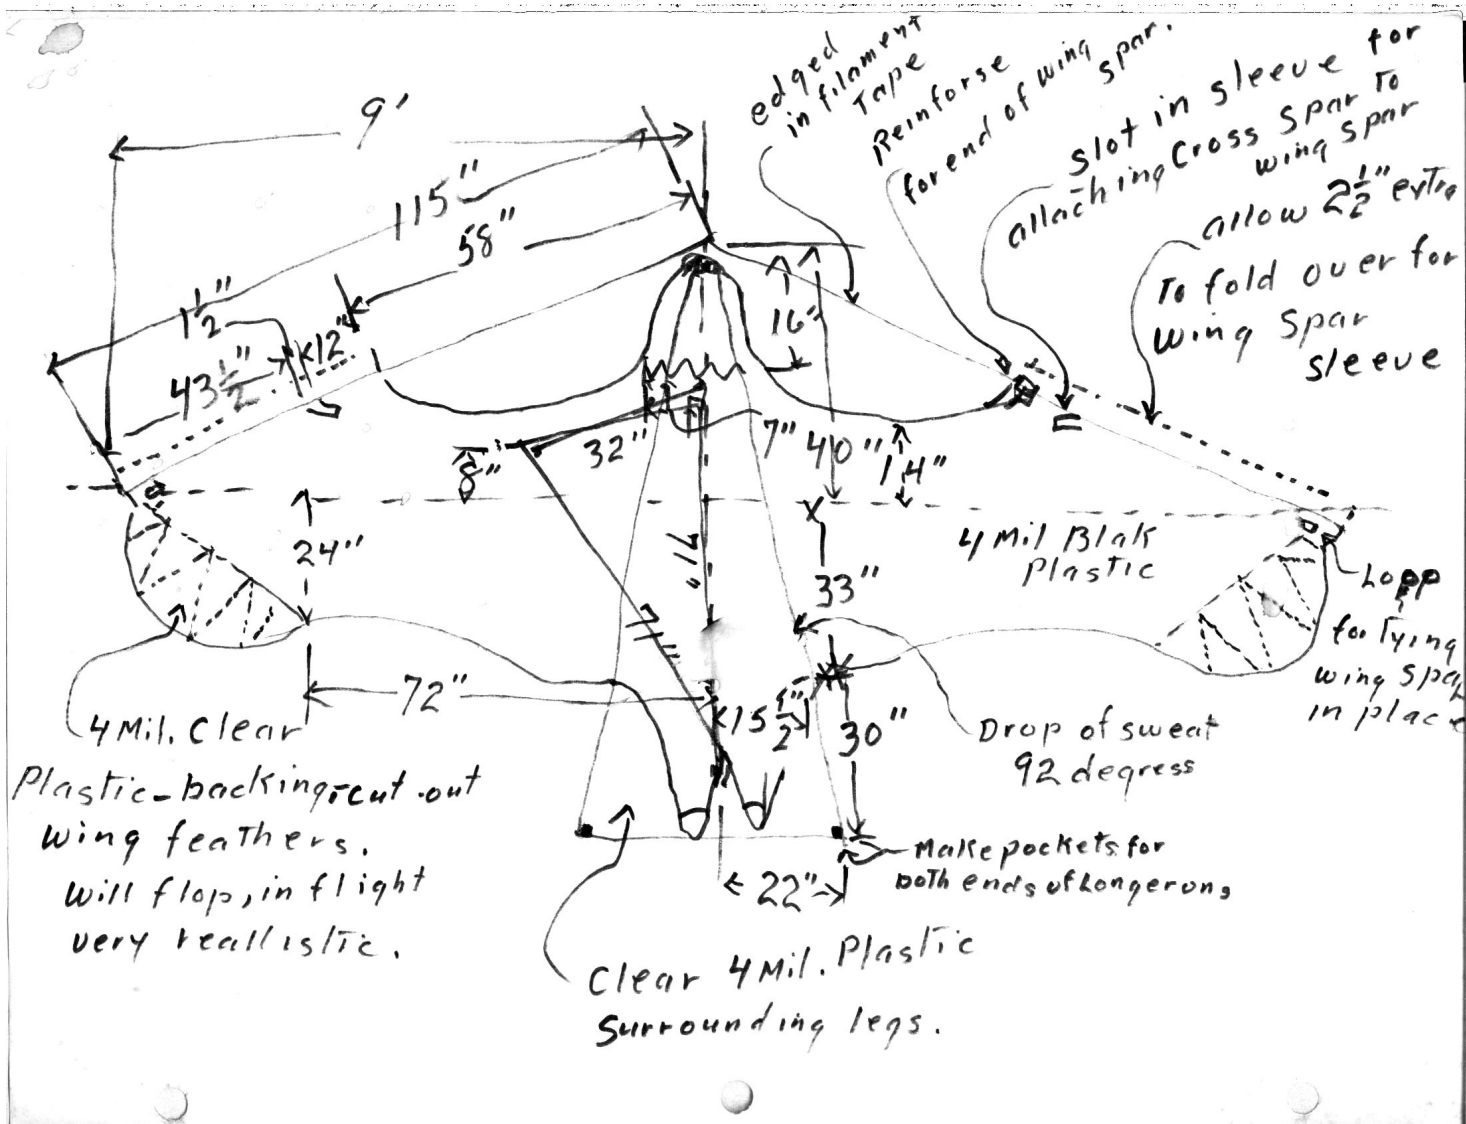 9'
edged
in filament
Tape
Reinforse
for end of wing
spar.
slot in sleeve for
attaching Cross spar To
wing spar
allow 2 1/2" extra
To fold over for
wing spar
sleeve
115"
58"
1 1/2"
12"
43 1/2"
16"
32"
7"
40"
14"
8"
24"
71"
33"
4 Mil Blak
Plastic
Lopp
for Tying
wing spar
in place
72"
15 1/2"
30"
Drop of sweat
92 degress
4 Mil. Clear
Plastic-backing, cut out
wing feathers.
will flop, in flight
very reallistic.
Make pockets for
both ends of Longerons
22"
Clear 4 Mil. Plastic
Surrounding legs.